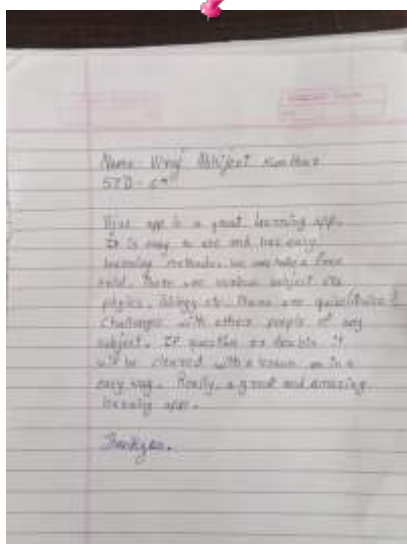 Name Viraj Abhijeet
STD - 6th
Byjus app is a great learning app.
It is easy to use and has easy
learning methods. we can take a free
There are various subject like
physics, biology etc. There are
Challenges with others people of any
subject. If question or doubts it
will be cleared with a reason in a
easy way. Really, a great and amazing
learning app.
Thankyou.